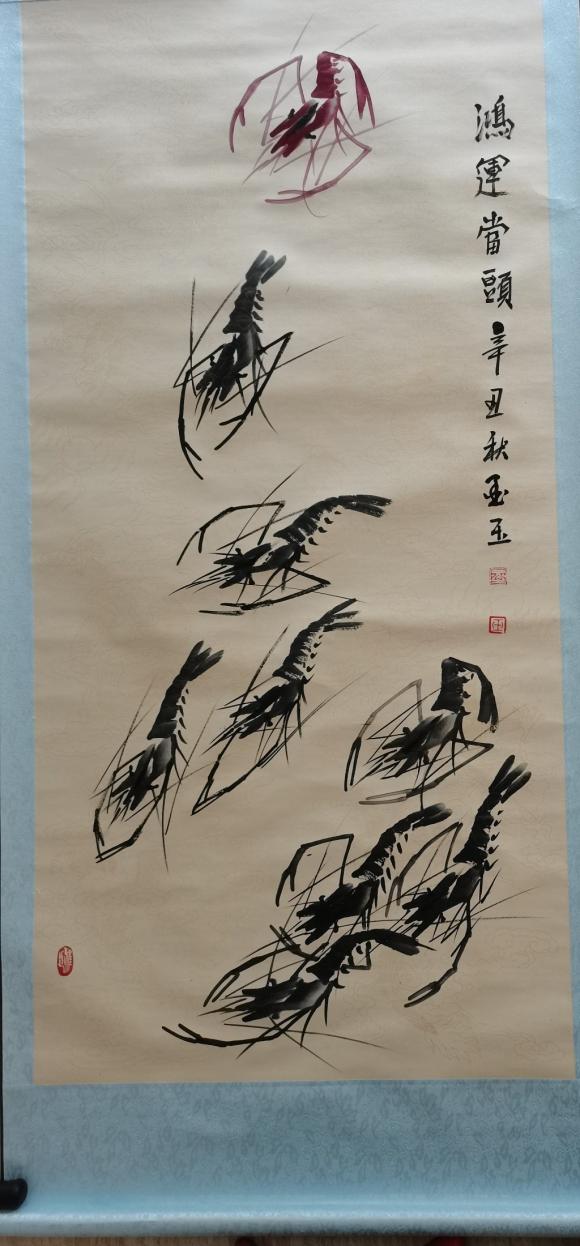 鴻運當頭辛丑秋玉玉